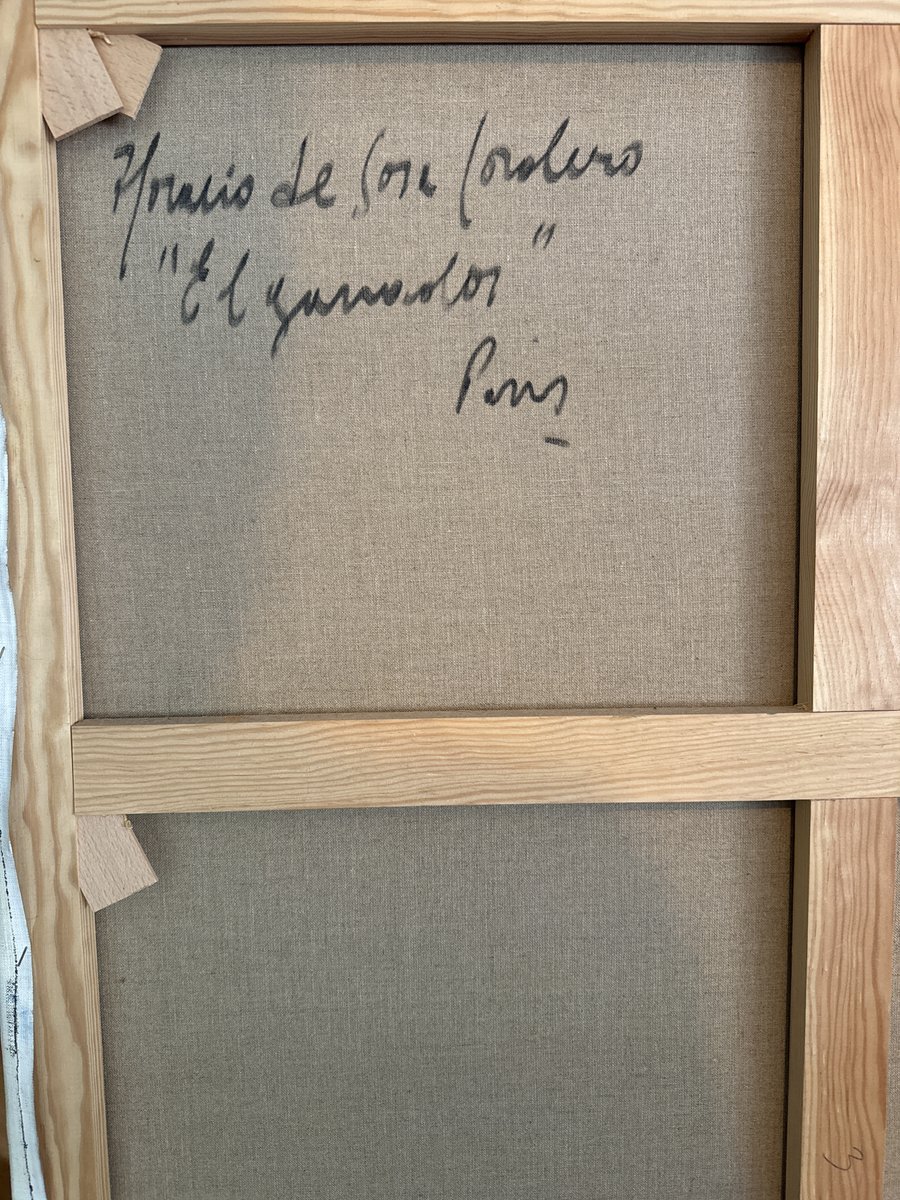 Horacio de Sosa Cordero
"El ganador"
Paris